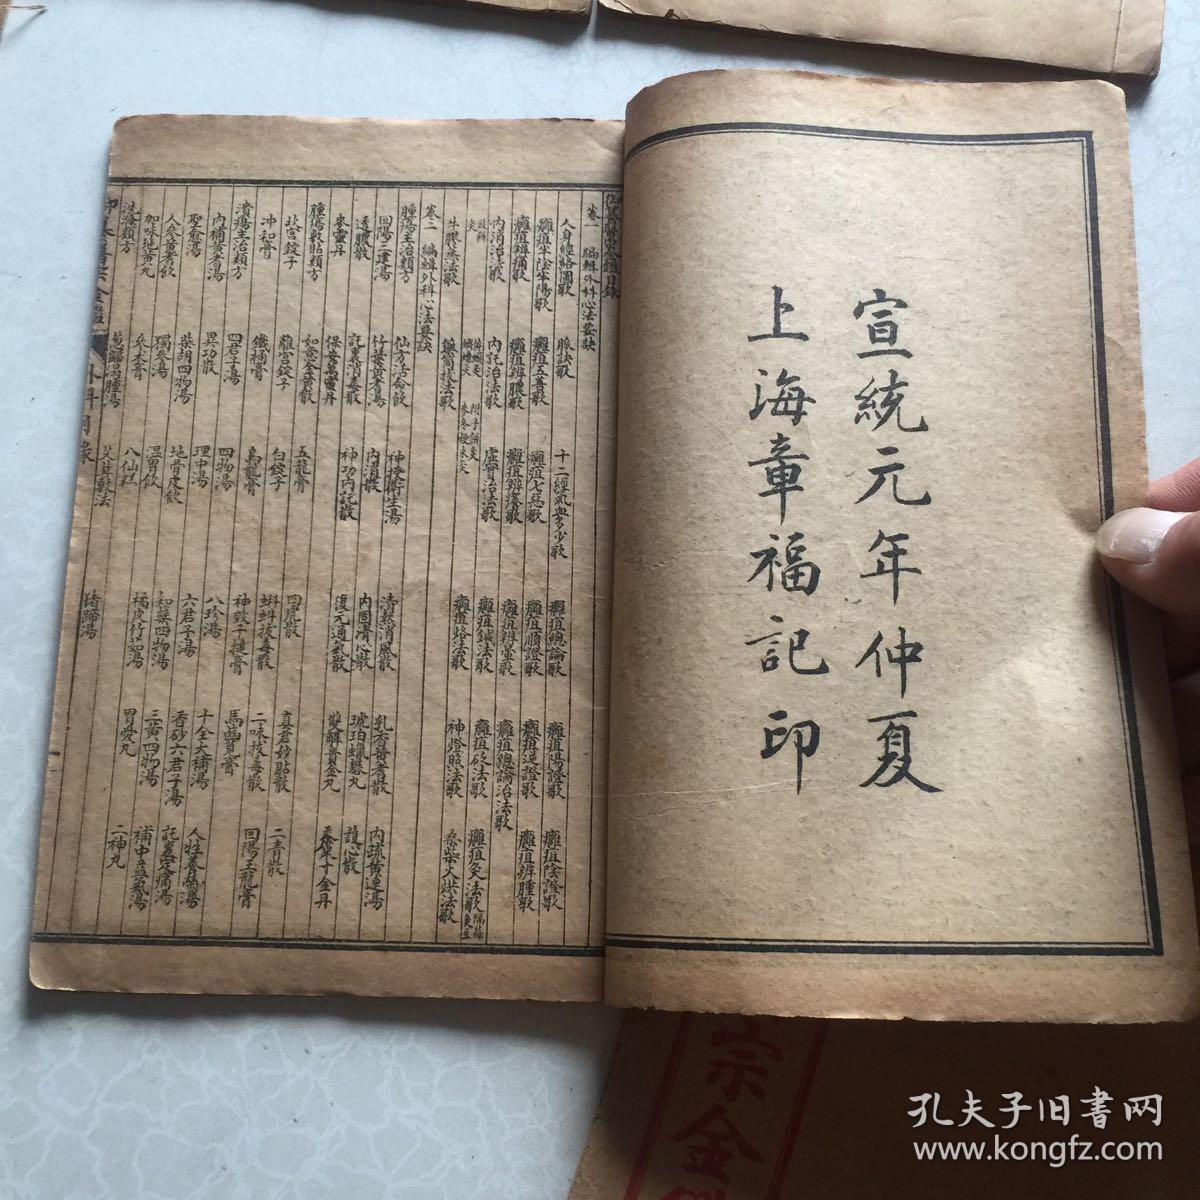 宣統元年仲夏
上海章福記印
御纂醫宗金鑑目錄
卷一 編輯外科心法要訣
人身經絡圖歌 脈訣歌 十二經氣血多少歌 癰疽總論歌 癰疽陽證歌 癰疽陰證歌
癰疽半陰半陽歌 癰疽五善歌 癰疽七惡歌 癰疽順證歌 癰疽逆證歌 癰疽辨腫歌
癰疽辨痛歌 癰疽辨膿歌 癰疽辨癢歌 癰疽辨暈歌 癰疽總論治法歌
內消治法歌 內託治法歌 虛實治法歌 癰疽鍼法歌 癰疽砭法歌 癰疽灸法歌
牛膠蒸法歌 藥筒拔法歌 癰疽烙法歌 神燈照法歌 桑柴火烘法歌
卷二 編輯外科心法要訣
腫瘍主治類方 仙方活命飲 神授衛生湯 清熱消風散 乳香黃耆散 內疏黃連湯
回陽三建湯 竹葉黃耆湯 內消散 內固清心散 琥珀蠟礬丸 護心散
透膿散 託裏消毒散 神功內託散 復元通氣散 雙解貴金丸
麥靈丹 保安萬靈丹
腫瘍敷貼類方 如意金黃散 五龍膏 四虎散 真君妙貼散 二青散
坎宮錠子 離宮錠子 白錠子 蝌蚪拔毒散 二味拔毒散 回陽玉龍膏
冲和膏 鐵桶膏 烏龍膏 神效千搥膏 馬齒莧膏
潰瘍主治類方 四君子湯 四物湯 八珍湯 十全大補湯 人牲養榮湯
內補黃耆湯 異功散 理中湯 六君子湯 香砂六君子湯 託裏定痛湯
聖愈湯 柴胡四物湯 地骨皮飲 知葉四物湯 三黃四物湯 補中益氣湯
人參黃耆飲 獨參湯 溫胃飲 橘皮竹茹湯 胃愛丸 二神丸
加味地黃丸 參朮膏 八仙糕
洗滌類方 葱歸溻腫湯 艾茸敷法 豬蹄湯
外科目錄
宗金
孔夫子旧書网
www.kongfz.com